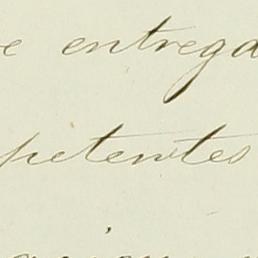 e entrega
petentes